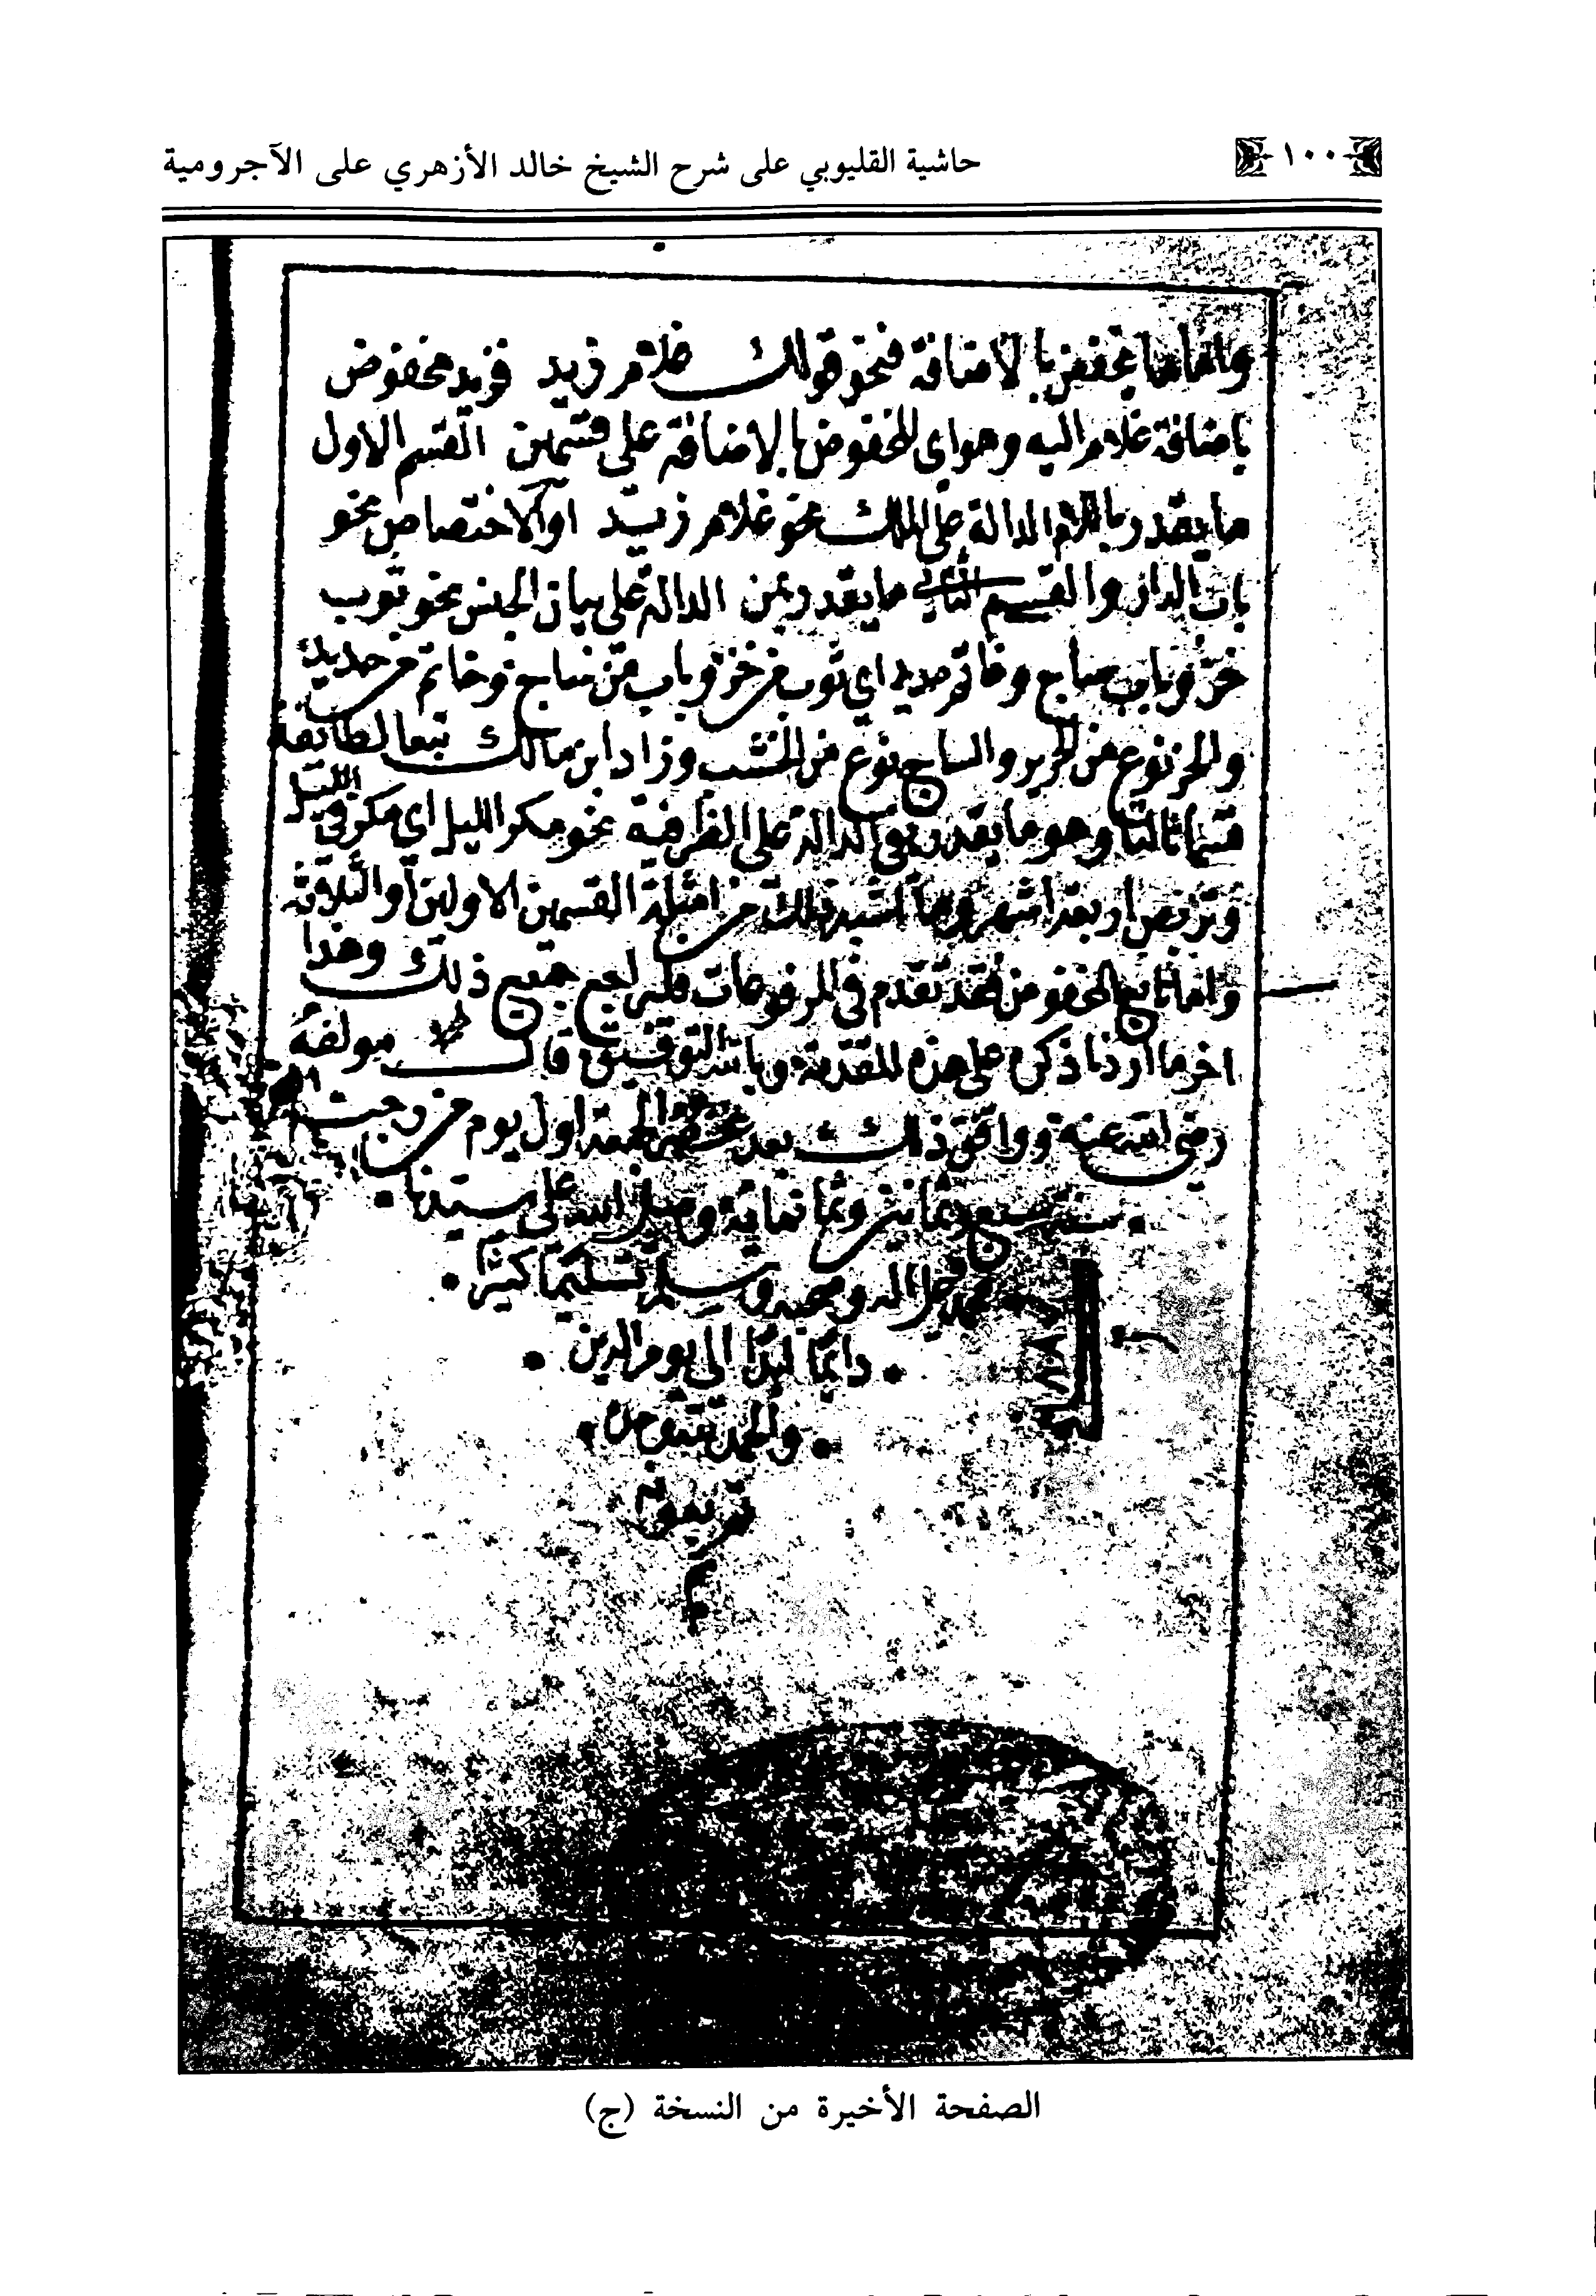 ١٠٠
حاشية القليوبي على شرح الشيخ خالد الأزهري على الآجرومية
واما ما يخفض بالاضافة فنحو قولك غلام زيد فزيد مخفوض
باضافة غلام اليه وهو اي المخفوض بالاضافة على قسمين القسم الاول
ما يقدر باللام الدالة على الملك نحو غلام زيد او الاختصاص نحو
باب الدار والقسم الثاني ما يقدر بمن الدالة على بيان الجنس نحو ثوب
خز وباب ساج وخاتم حديد اي ثوب من خز وباب من ساج وخاتم من حديد
والخز نوع من الحرير والساج نوع من الخشب وزاد ابن مالك تبعا لطايفة
قسما ثالثا وهو ما يقدر بفي الدالة على الظرفية نحو مكر الليل اي مكر في الليل
وتربص اربعة اشهر وما اشبه ذلك من امثلة القسمين الاولين او الثلاثة
واما تابع المخفوض فقد تقدم في المرفوعات فليراجع جميع ذلك وهذا
اخر ما اردنا ذكره على هذه المقدمة وبالله التوفيق قال مولفه
رضي الله عنه ووافق ذلك بعد عصر الجمعة اول يوم من رجب
سنة سبع وثمانين وثمانماية وصلى الله على سيدنا
محمد وعلى اله وصحبه وسلم تسليما كثيرا
دايما ابدا الى يوم الدين
والحمد لله
تم بعونه
م
الصفحة الأخيرة من النسخة (ج)